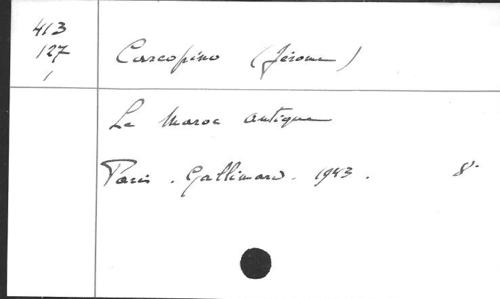 413
127
1
Carcopino (Jérome)
Le Maroc antique
Paris. Gallimard. 1943. 8°